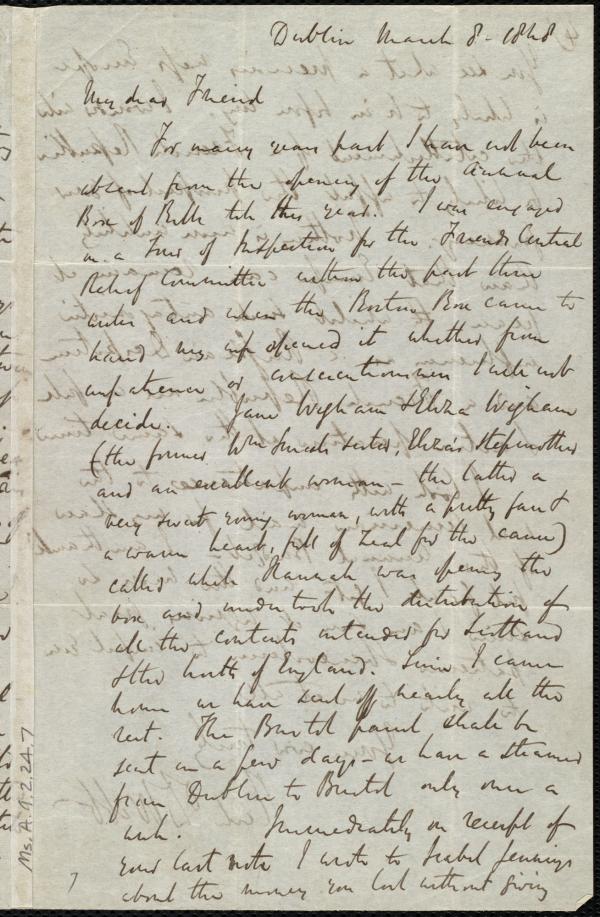 Dublin March 8 - 1848
My dear Friend
For many years past I have not been
absent from the opening of the annual
Box of Bells till this year. I was engaged
in a Tour of Inspection for the Friends Central
Relief Committee within the past three
weeks and when the Boston Box came to
hand my wife opened it whether from
impatience or conscientiousness I will not
decide. Jane Wigham & Eliza Wigham
(the former Wm Smeal's sister, Eliza's stepmother
and an excellent woman - the latter a
very sweet young woman, with a pretty face &
a warm heart, full of zeal for the cause)
called while Hannah was opening the
box and undertook the distribution of
all the contents intended for Scotland
& the north of England. Since I came
home we have sent off nearly all the
rest. The Bristol parcel shall be
sent in a few days - we have a steamer
from Dublin to Bristol only once a
week. Immediately on receipt of
your last note I wrote to Isabel Jennings
about the money you lost without giving
Ms. A. 9.2.24.7
7